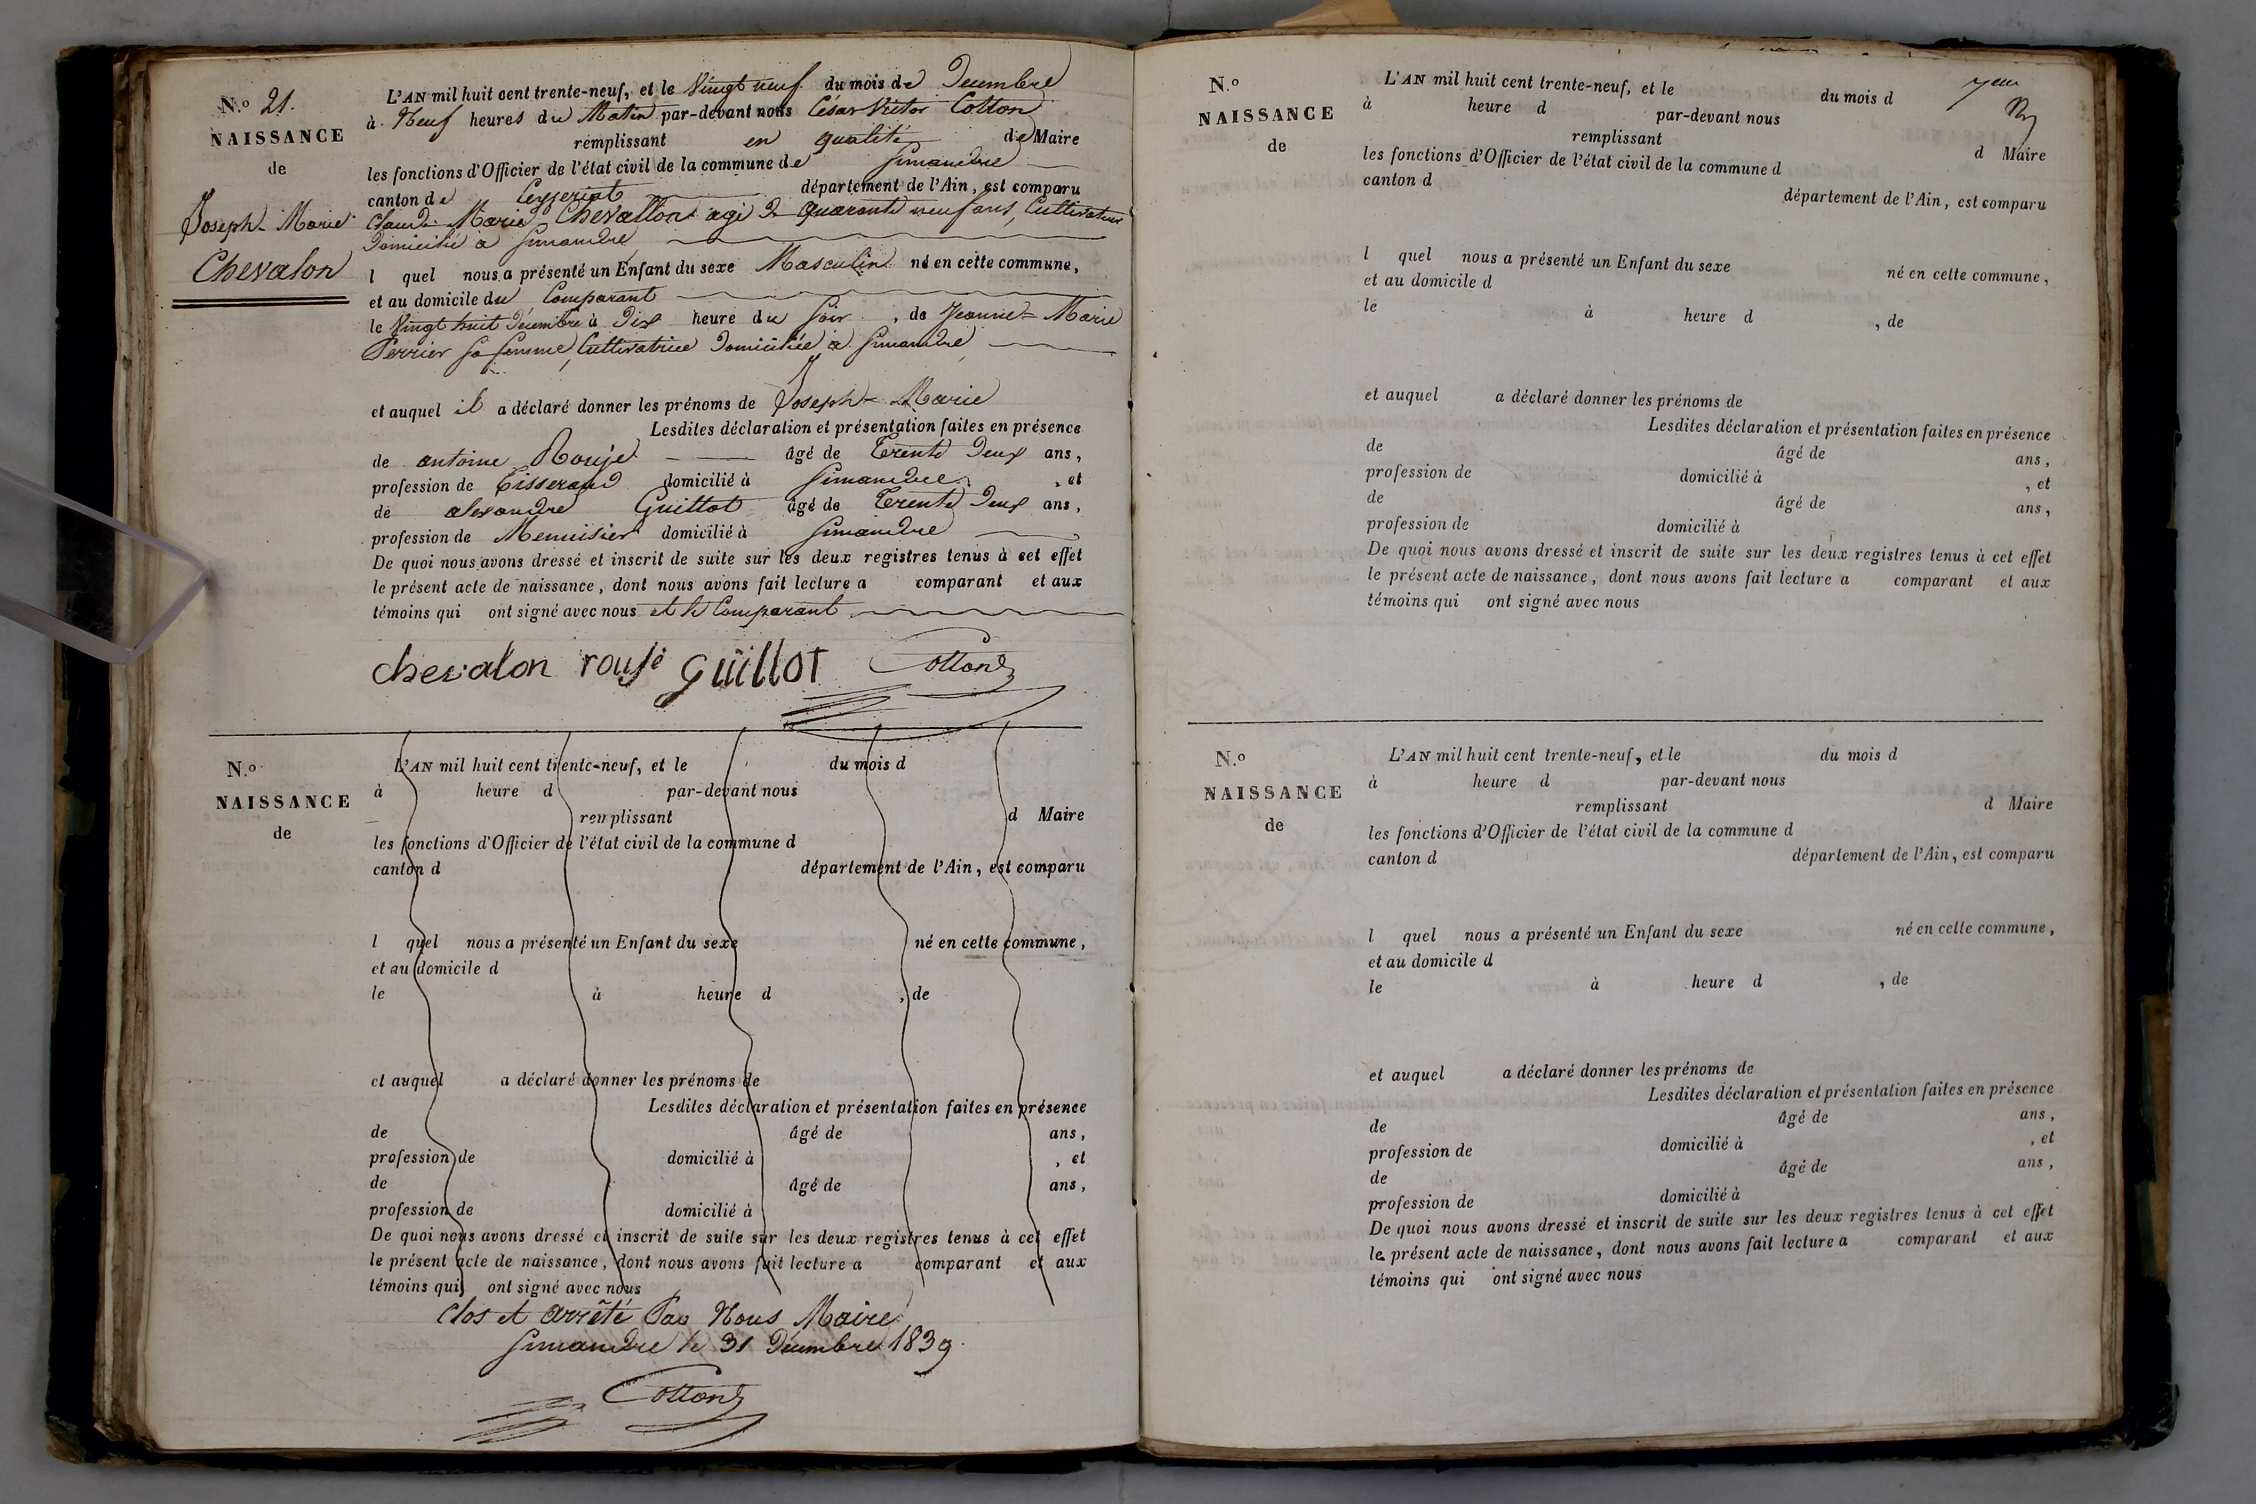 N.o 21.
NAISSANCE
de
Joseph-Marie
Chevalon
L'AN mil huit cent trente-neuf, et le Vingt neuf du mois de Decembre
à Neuf heures du Matin par-devant nous César Victor Cotton
remplissant en qualité de Maire
les fonctions d'Officier de l'état civil de la commune de Simandre
canton de Ceyzeriat département de l'Ain, est comparu
Claude Marie Chevallon agé de quarante neuf ans, Cultivateur
Domicilié à Simandre
l quel nous a présenté un Enfant du sexe Masculin né en cette commune,
et au domicile du Comparant
le Vingt huit Décembre à Dix heure du Soir, de Jeanne-Marie
Perrier sa femme, Cultivatrice Domiciliée à Simandre
et auquel il a déclaré donner les prénoms de Joseph-Marie
Lesdites déclaration et présentation faites en présence
de antoine Rouje âgé de Trente Deux ans,
profession de Tisserand domicilié à Simandre, et
de alexandre Guillot âgé de Trente Deux ans,
profession de Menuisier domicilié à Simandre
De quoi nous avons dressé et inscrit de suite sur les deux registres tenus à cet effet
le présent acte de naissance, dont nous avons fait lecture a comparant et aux
témoins qui ont signé avec nous et le Comparant
chevalon rouje guillot Cotton
N.o
NAISSANCE
de
L'AN mil huit cent trente-neuf, et le du mois d
à heure d par-devant nous
remplissant d Maire
les fonctions d'Officier de l'état civil de la commune d
canton d département de l'Ain, est comparu
l quel nous a présenté un Enfant du sexe né en cette commune,
et au domicile d
le à heure d , de
et auquel a déclaré donner les prénoms de
Lesdites déclaration et présentation faites en présence
de âgé de ans,
profession de domicilié à , et
de âgé de ans,
profession de domicilié à
De quoi nous avons dressé et inscrit de suite sur les deux registres tenus à cet effet
le présent acte de naissance, dont nous avons fait lecture a comparant et aux
témoins qui ont signé avec nous
Clos et arrêté Par Nous Maire
Simandre le 31 Décembre 1839.
Cotton
N.o
NAISSANCE
de
L'AN mil huit cent trente-neuf, et le du mois d
à heure d par-devant nous
remplissant d Maire
les fonctions d'Officier de l'état civil de la commune d
canton d département de l'Ain, est comparu
l quel nous a présenté un Enfant du sexe né en cette commune,
et au domicile d
le à heure d , de
et auquel a déclaré donner les prénoms de
Lesdites déclaration et présentation faites en présence
de âgé de ans,
profession de domicilié à , et
de âgé de ans,
profession de domicilié à
De quoi nous avons dressé et inscrit de suite sur les deux registres tenus à cet effet
le présent acte de naissance, dont nous avons fait lecture a comparant et aux
témoins qui ont signé avec nous
N.o
NAISSANCE
de
L'AN mil huit cent trente-neuf, et le du mois d
à heure d par-devant nous
remplissant d Maire
les fonctions d'Officier de l'état civil de la commune d
canton d département de l'Ain, est comparu
l quel nous a présenté un Enfant du sexe né en cette commune,
et au domicile d
le à heure d , de
et auquel a déclaré donner les prénoms de
Lesdites déclaration et présentation faites en présence
de âgé de ans,
profession de domicilié à , et
de âgé de ans,
profession de domicilié à
De quoi nous avons dressé et inscrit de suite sur les deux registres tenus à cet effet
le présent acte de naissance, dont nous avons fait lecture a comparant et aux
témoins qui ont signé avec nous